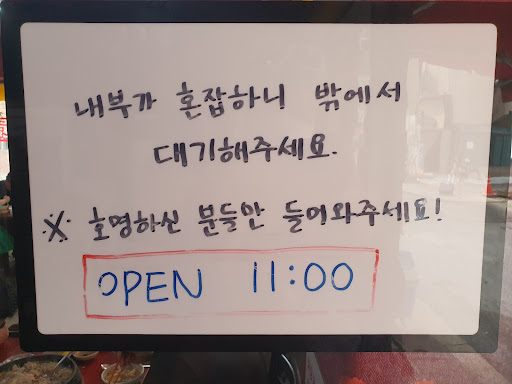 내부가 혼잡하니 밖에서
대기해주세요.
※ 호명하신 분들만 들어와주세요!
OPEN 11:00